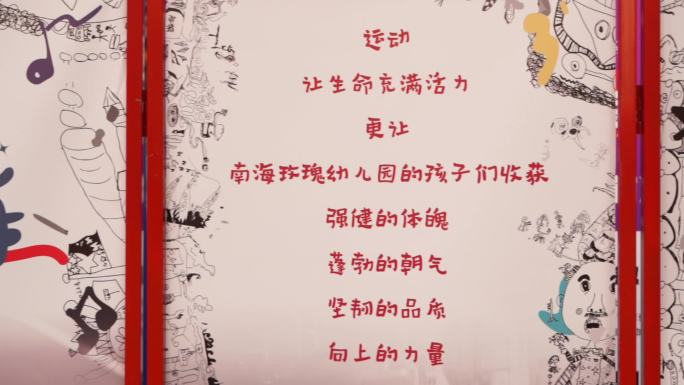 运动
让生命充满活力
更让
南海玫瑰幼儿园的孩子们收获
强健的体魄
蓬勃的朝气
坚韧的品质
向上的力量